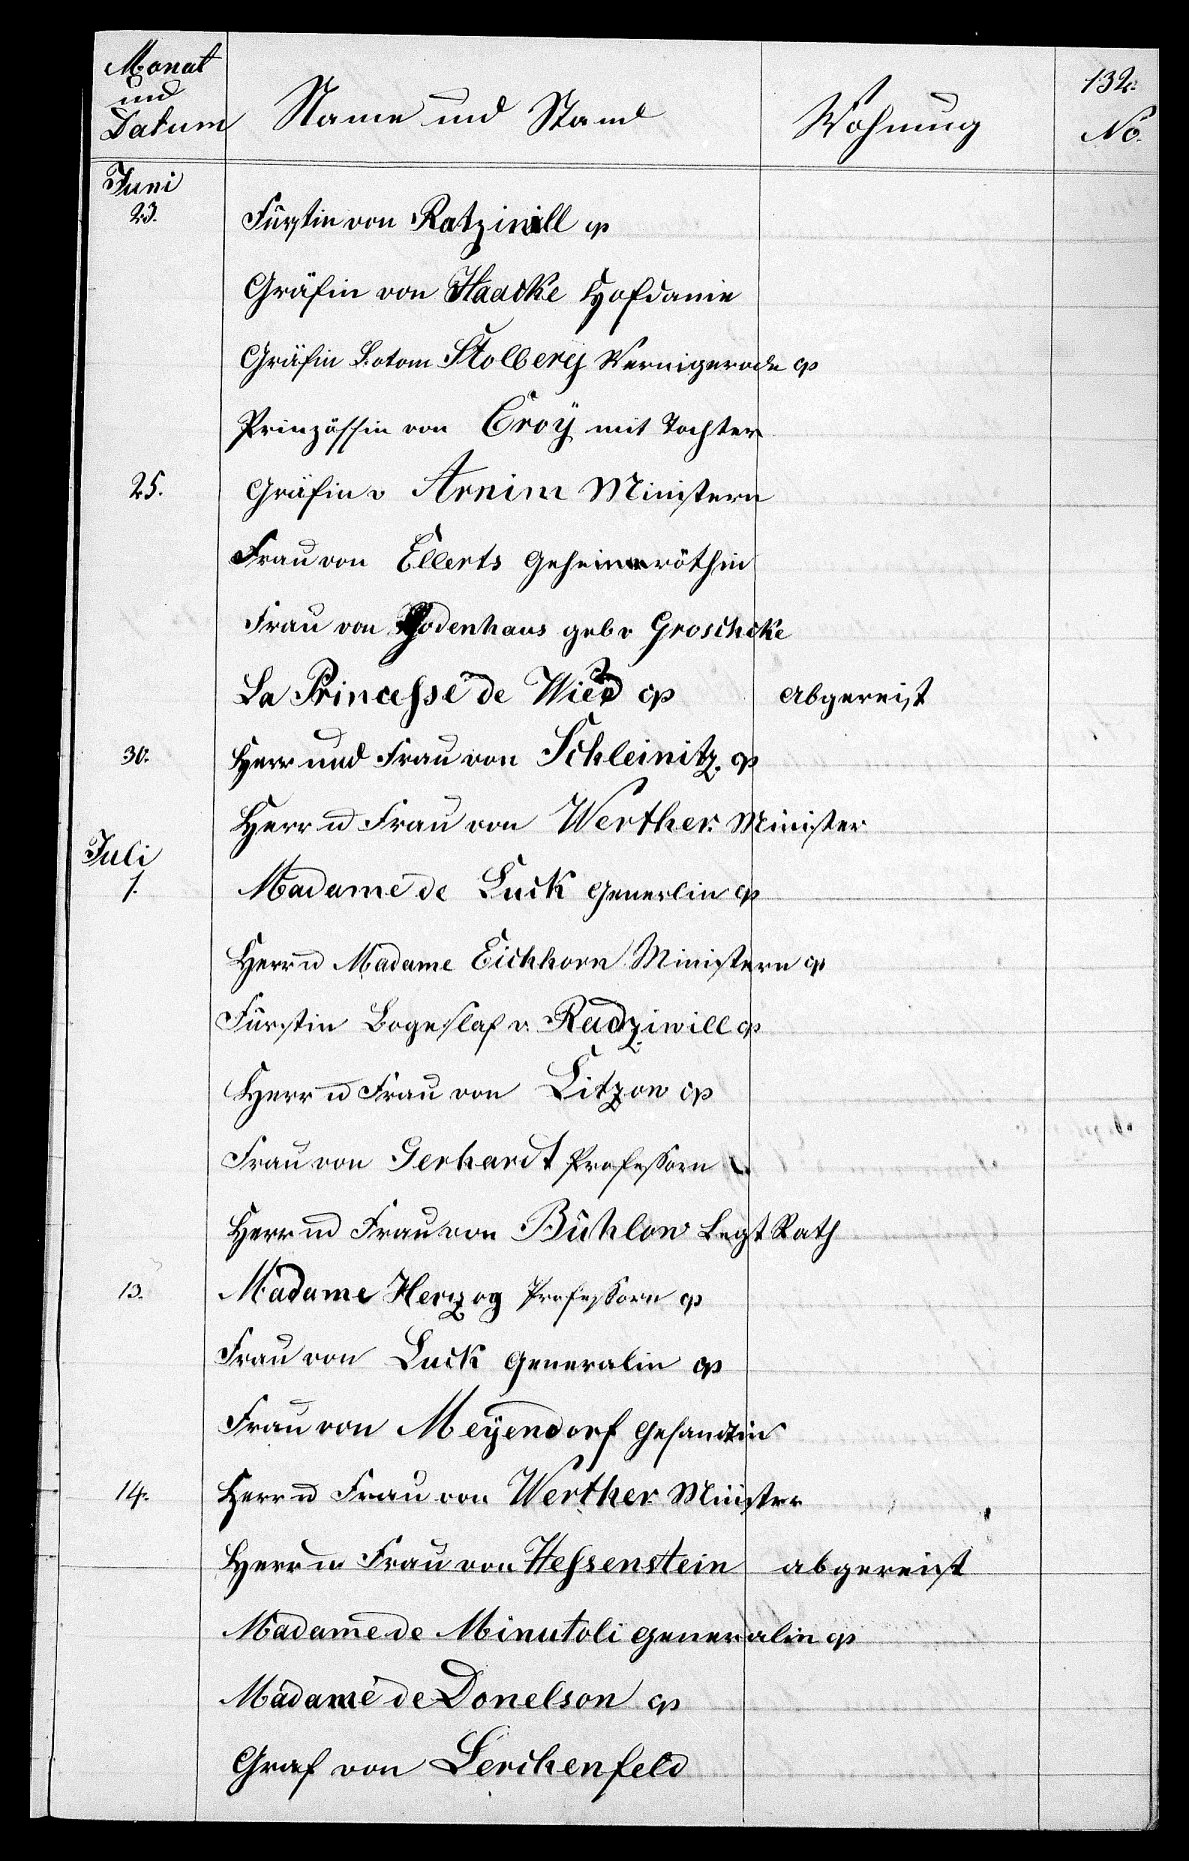 Monat und Datum Name und Stand Wohnung 132. No.
Juni
23. Fürstin von Ratziwill cp
Gräfin von Haacke Hofdame
Gräfin Botom Stolberg Wernigerode cp
Prinzössin von Croÿ mit Tochter
25. Gräfin v Arnim Ministern
Frau von Ellerts Geheimeröthin
Frau von Bodenhaus geb v Groschcke
La Princesse de Wied cp abgereist
30. Herr und Frau von Schleinitz. cp
Herr u Frau von Werther. Minister
Juli
1. Madame de Luck Generlin cp
Herr u Madame Eichhorn Ministern cp
Fürstin Bogeslaf v. Radziwill cp
Herr u Frau von Litzow cp
Frau von Gerhardt Professorn
Herr u Frau von Bühlow Legt Rath
13. Madame Herzog Professorn cp
Frau von Luck Generalin cp
Frau von Meÿendorf Gesandtin
14. Herr u Frau von Werther Minister
Herr u Frau von Hessenstein abgereist
Madame de Minutoli Generalin cp
Madame de Donelson cp
Graf von Lerchenfeld